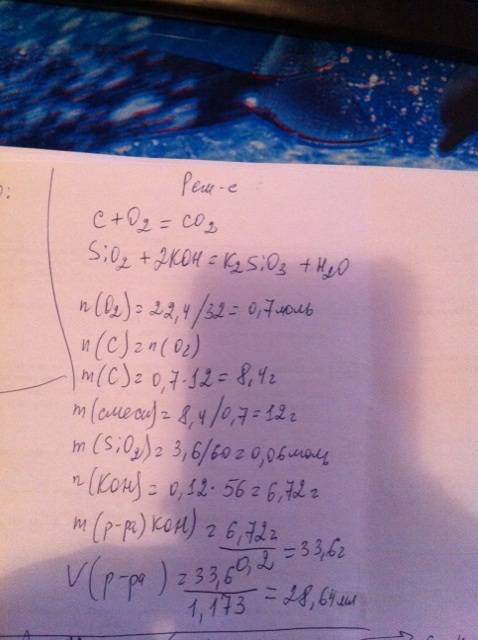 Реш-е
C + O₂ = CO₂
SiO₂ + 2KOH = K₂SiO₃ + H₂O
n(O₂) = 22,4/32 = 0,7 моль
n(C) = n(O₂)
m(C) = 0,7·12 = 8,4г
m(смеси) = 8,4/0,7 = 12г
m(SiO₂) = 3,6/60 = 0,06 моль
n(KOH) = 0,12·56 = 6,72г
m(р-ра)KOH) = 6,72г/0,2 = 33,6г
V(р-ра) = 33,6/1,173 = 28,64мл